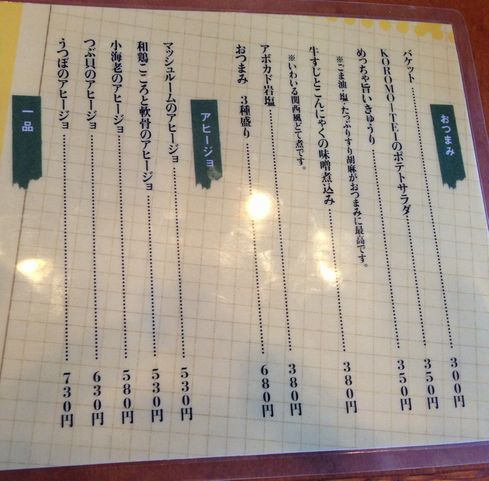 おつまみ
バケット…………300円
KOROMO-I-TEIのポテトサラダ…………350円
めっちゃ旨いきゅうり…………350円
※ごま油・塩・たっぷりすり胡麻がおつまみに最高です。
牛すじとこんにゃくの味噌煮込み…………380円
※いわいる関西風どて煮です。
アボカド岩塩…………380円
おつまみ 3種盛り…………680円
アヒージョ
マッシュルームのアヒージョ…………530円
和鶏こころと軟骨のアヒージョ…………530円
小海老のアヒージョ…………580円
つぶ貝のアヒージョ…………630円
うつぼのアヒージョ…………730円
一品